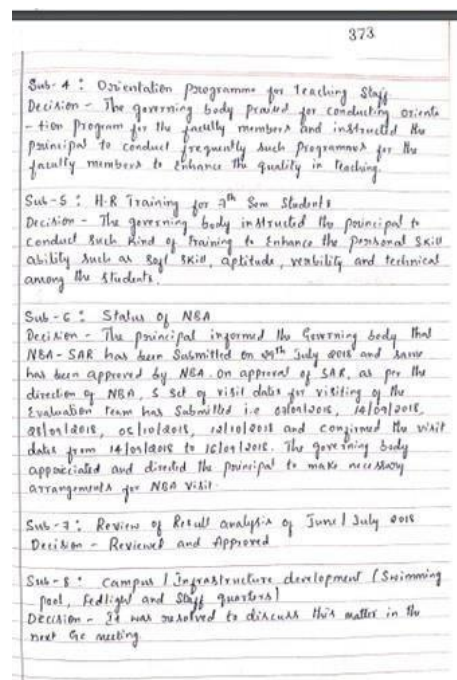 373
Sub-4 : Orientation Programme for Teaching Staff
Decision - The governing body praised for conducting oriente
-tion Program for the faculty members and instructed the
principal to conduct frequently such Programmes for the
faculty members to Enhance the quality in Teaching.
Sub-5 : H.R Training for 7th Sem Students
Decision - The governing body instructed the principal to
conduct such Kind of Training to Enhance the personal Skill
ability such as Soft Skill, aptitude, verbility and technical
among the students.
Sub-6 : Status of NBA
Decision - The principal informed the Governing body that
NBA-SAR has been Submitted on July 2018 and same
has been approved by NBA. On approval of SAR, as per the
direction of NBA, 5 set of visit dates for visiting of the
Evaluation team has Submitted i.e 14/09/2018,
05/10/2018, 12/10/2018 and confirmed the visit
dates from 14/09/2018 to 16/09/2018. The governing body
appreciated and directed the principal to make necessary
arrangements for NBA Visit.
Sub-7 : Review of Result analysis of June/July 2018
Decision - Reviewed and Approved
Sub-8 : Campus / Infrastructure development (Swimming
pool, and Staff quarters)
Decision - It was resolved to discuss this matter in the
next GC meeting.